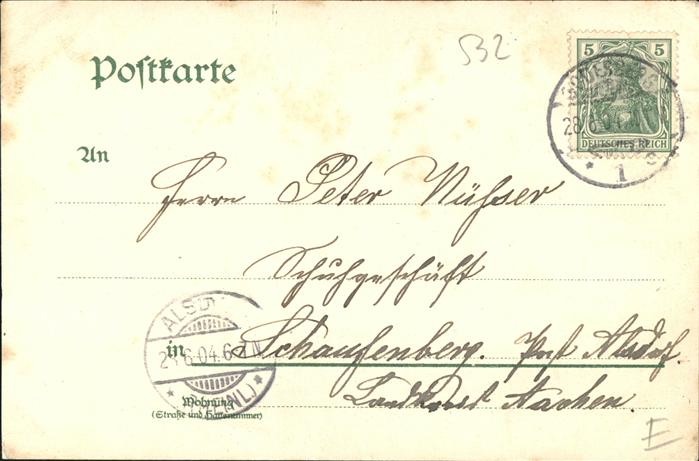 532
Postkarte
5 5
DEUTSCHES REICH
28.6.04
1
An
Herrn Peter
Schuhgeschäft
in Schaufenberg. Post Alsdorf.
Landkreis Aachen.
ALSD
6.04.6-7N
Wohnung
(Straße und Hausnummer)
E